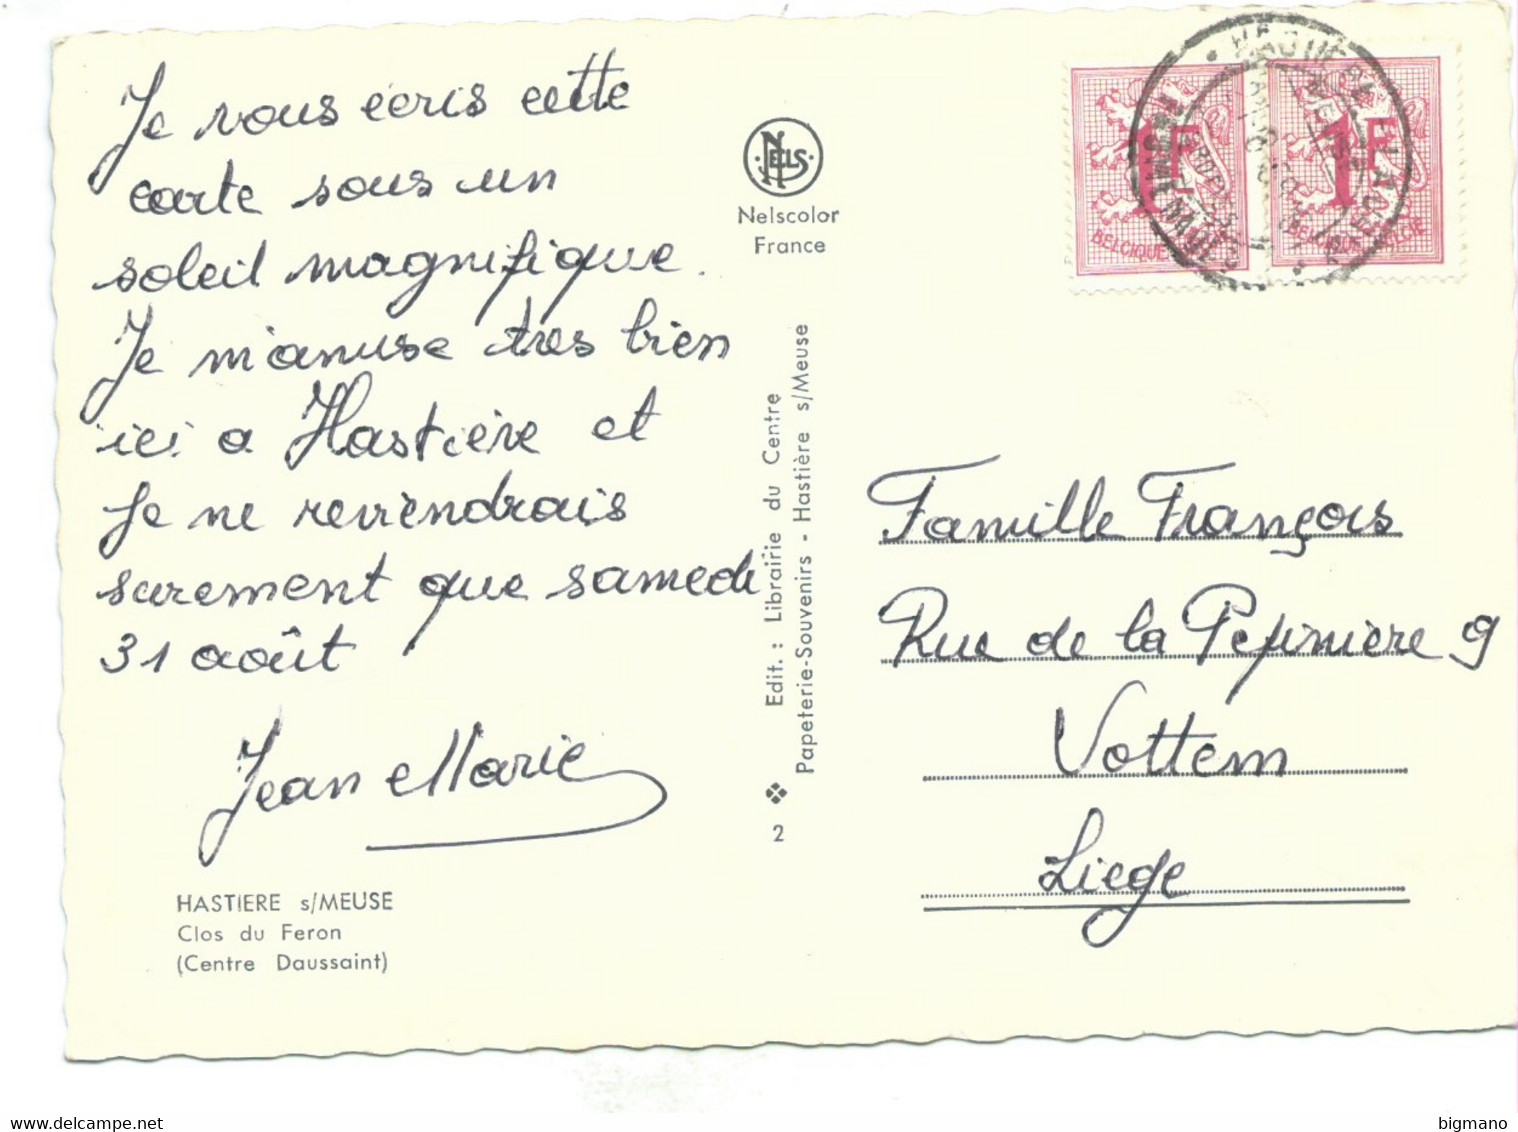 Je vous ecris cette
carte sous un
soleil magnifique.
Je m'amuse tres bien
ici a Hastière et
je ne reviendrais
surement que samedi
31 août
Jean Marie
HASTIERE s/MEUSE
Clos du Feron
(Centre Daussaint)
NELS
Nelscolor
France
Edit. : Librairie du Centre
Papeterie-Souvenirs - Hastière s/Meuse
2
1F
BELGIQUE
1F
BELGIQUE BELGIË
Famille François
Rue de la Pepinière 9
Vottem
Liege
bigmano